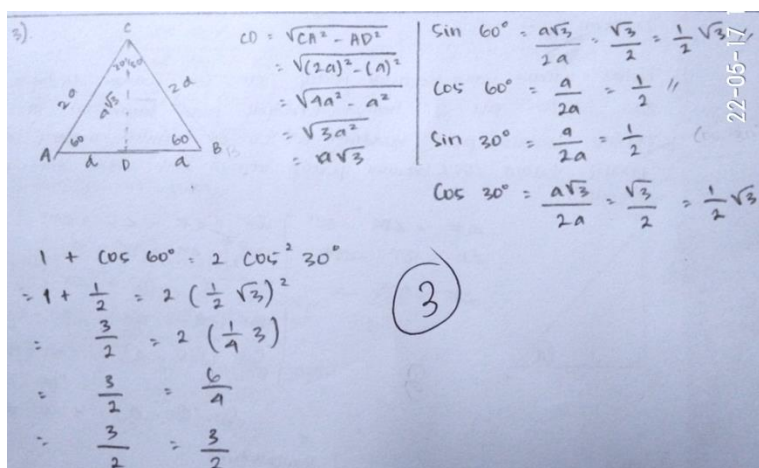 3)
C
30 30
2a
2a
a√3
60
60
A
B
a
D
a
CD = √(CA² - AD²)
= √((2a)² - (a)²)
= √(4a² - a²)
= √(3a²)
= a√3
Sin 60° = a√3/2a = √3/2 = 1/2 √3 //
Cos 60° = a/2a = 1/2 //
Sin 30° = a/2a = 1/2
Cos 30° = a√3/2a = √3/2 = 1/2 √3
1 + cos 60° = 2 cos² 30°
= 1 + 1/2 = 2 (1/2 √3)²
= 3/2 = 2 (1/4 3)
= 3/2 = 6/4
= 3/2 = 3/2
3
22-05-17